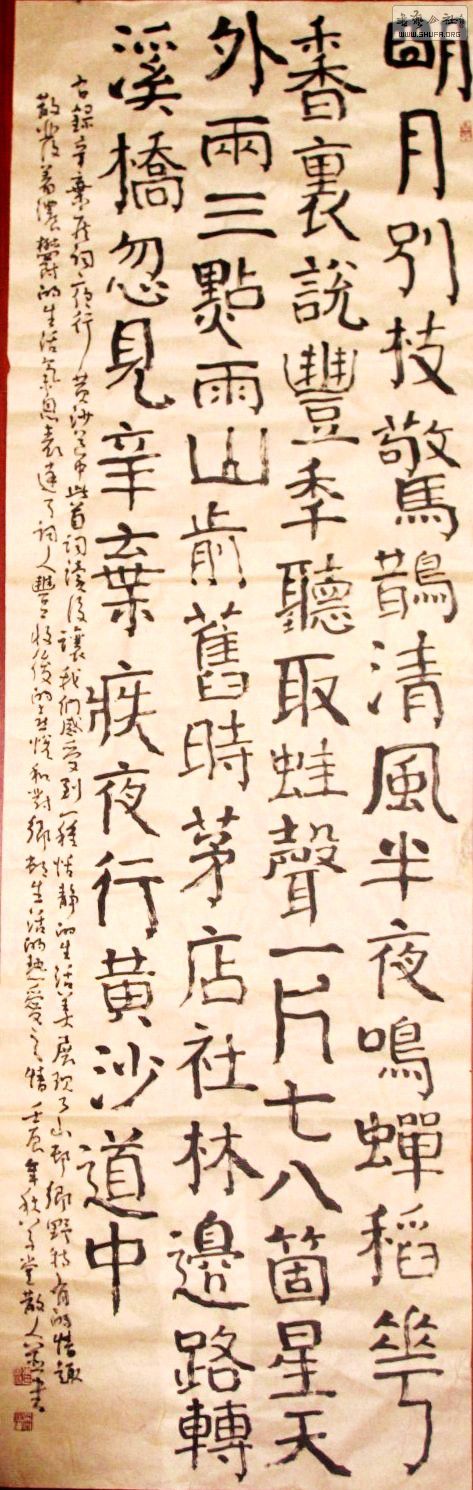 明月別枝驚鵲清風半夜鳴蟬稻花
香裏說豐年聽取蛙聲一片七八箇星天
外兩三點雨山前舊時茅店社林邊路轉
溪橋忽見辛棄疾夜行黃沙道中
右錄辛棄疾詞夜行黄沙道中此首詞讀後讓我們感受到一種恬靜的生活美展現了山邨鄉野特有的情趣
散發着濃鬱的生活氣息表達了詞人豐收後的喜悅和對鄉邨生活的熱愛之情壬辰年秋堂散人書
WWW.SHUFA.ORG